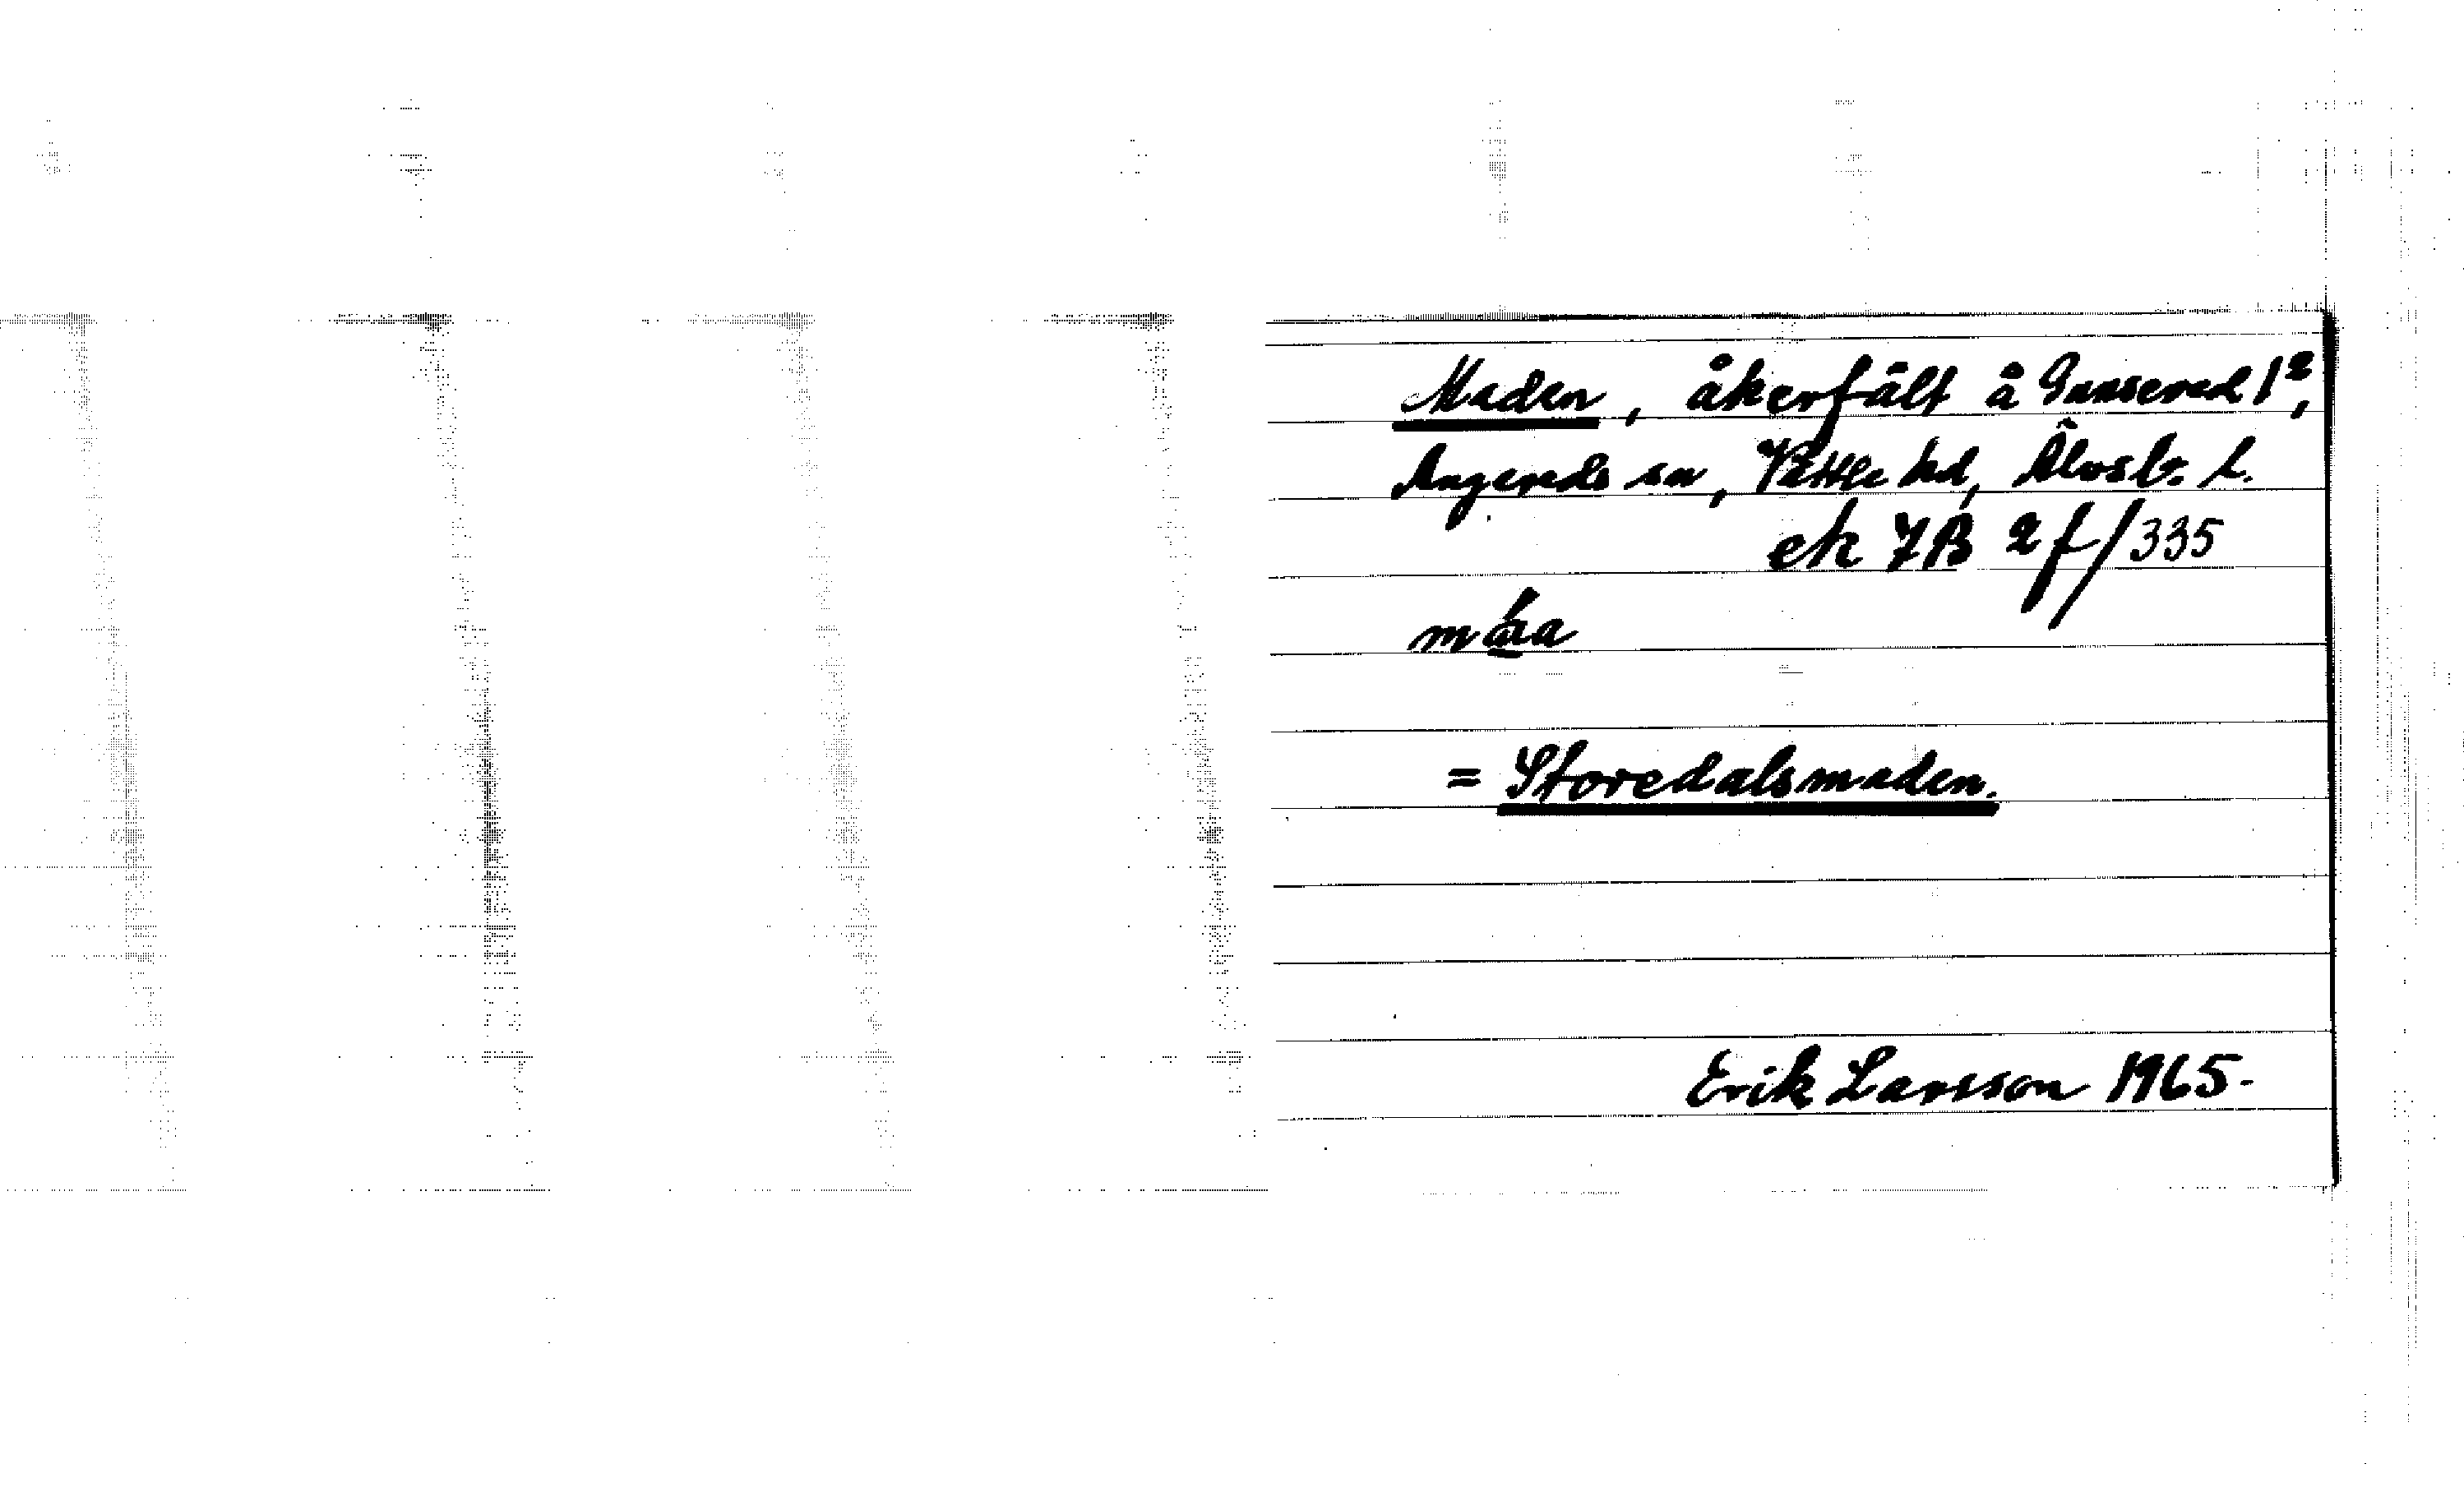 Maden, åkerfält å Gunnered 1²,
Angereds sn, Vättle hd, Älvsb. L.
ek 7B 2f/335
máa
= Storedalsmaden.
Erik Larsson 1965.